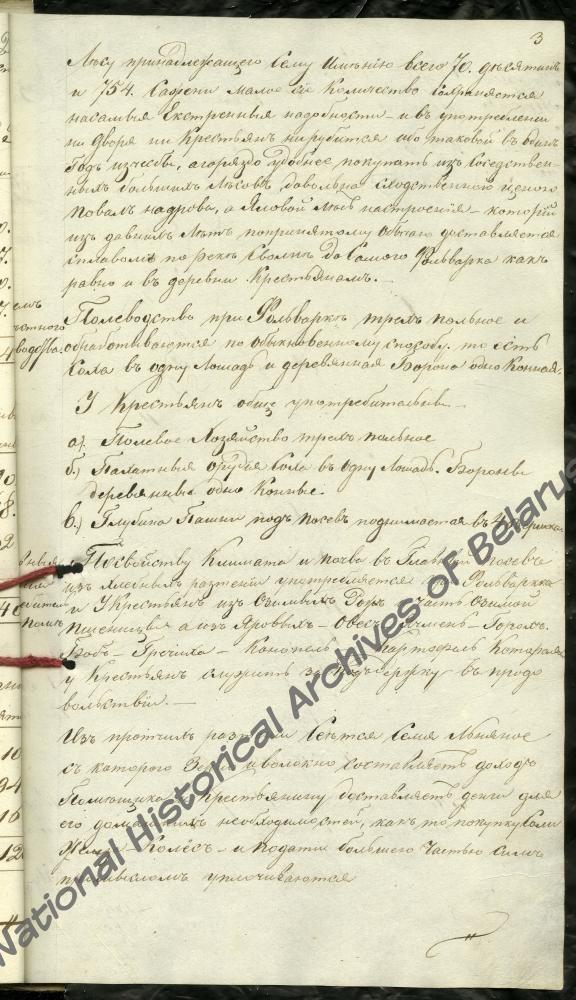 3
Лѣсу принадлежащаго Сему Имѣнію всего 70. десятинъ
и 754. Сажени малое сіе Количество Сохраняется
на самыя Екстренныя надобности и въ употребленіи
ни Двора ни Крестьянъ нерубится ибо таковой въ одинъ
Годъ изчесъ бы, а гораздо удобнее покупать изъ Соседствен-
ныхъ большихъ Лѣсовъ, довольно сходственною ценою
повалъ на дрова, а Яловой лѣсъ на строенія, который
изъ давнихъ Лѣтъ по принятому Обычаю доставляется
сплавомъ по рекѣ до Самого Фольварка какъ
равно и въ деревни Крестьянамъ.
Полеводство при Фольваркѣ трехъ польное и
обработываются по обыкновенному способу. то есть
Соха въ одну Лошадь и деревянная Борона одно Конная.
У Крестьянъ обще употребительны
а). Полевое Хозяйство трехъ польное
б.) Пахатныя орудіе Соха въ одну Лошадь. Бороны
деревянныя одно Конные.
в.) Глубина Пашни подъ посевъ поднимается въ 4 вершка
По свойству Климата и почвы въ Главный посевъ
изъ хлебныхъ разтеній употребляется при Фольваркѣ
и У Крестьянъ изъ Озимыхъ Рожъ часть Озимой
пшеницы а изъ Яровыхъ Овесъ Ячмень Горохъ.
Бобъ Гречиха Конопель Картофель Которая
у Крестьянъ служитъ въ продо
вольствіи.
Изъ протчихъ разтеній Сеются Семя Льняное
съ котораго Зерно и волокно Составляетъ доходъ
Помещика Крестьянину доставляетъ деньги для
его домашнихъ необходимостей, какъ то покупку Соли
Желѣза Колесъ и Подати большею Частью симъ
промысломъ уплочиваются
National Historical Archives of Belarus